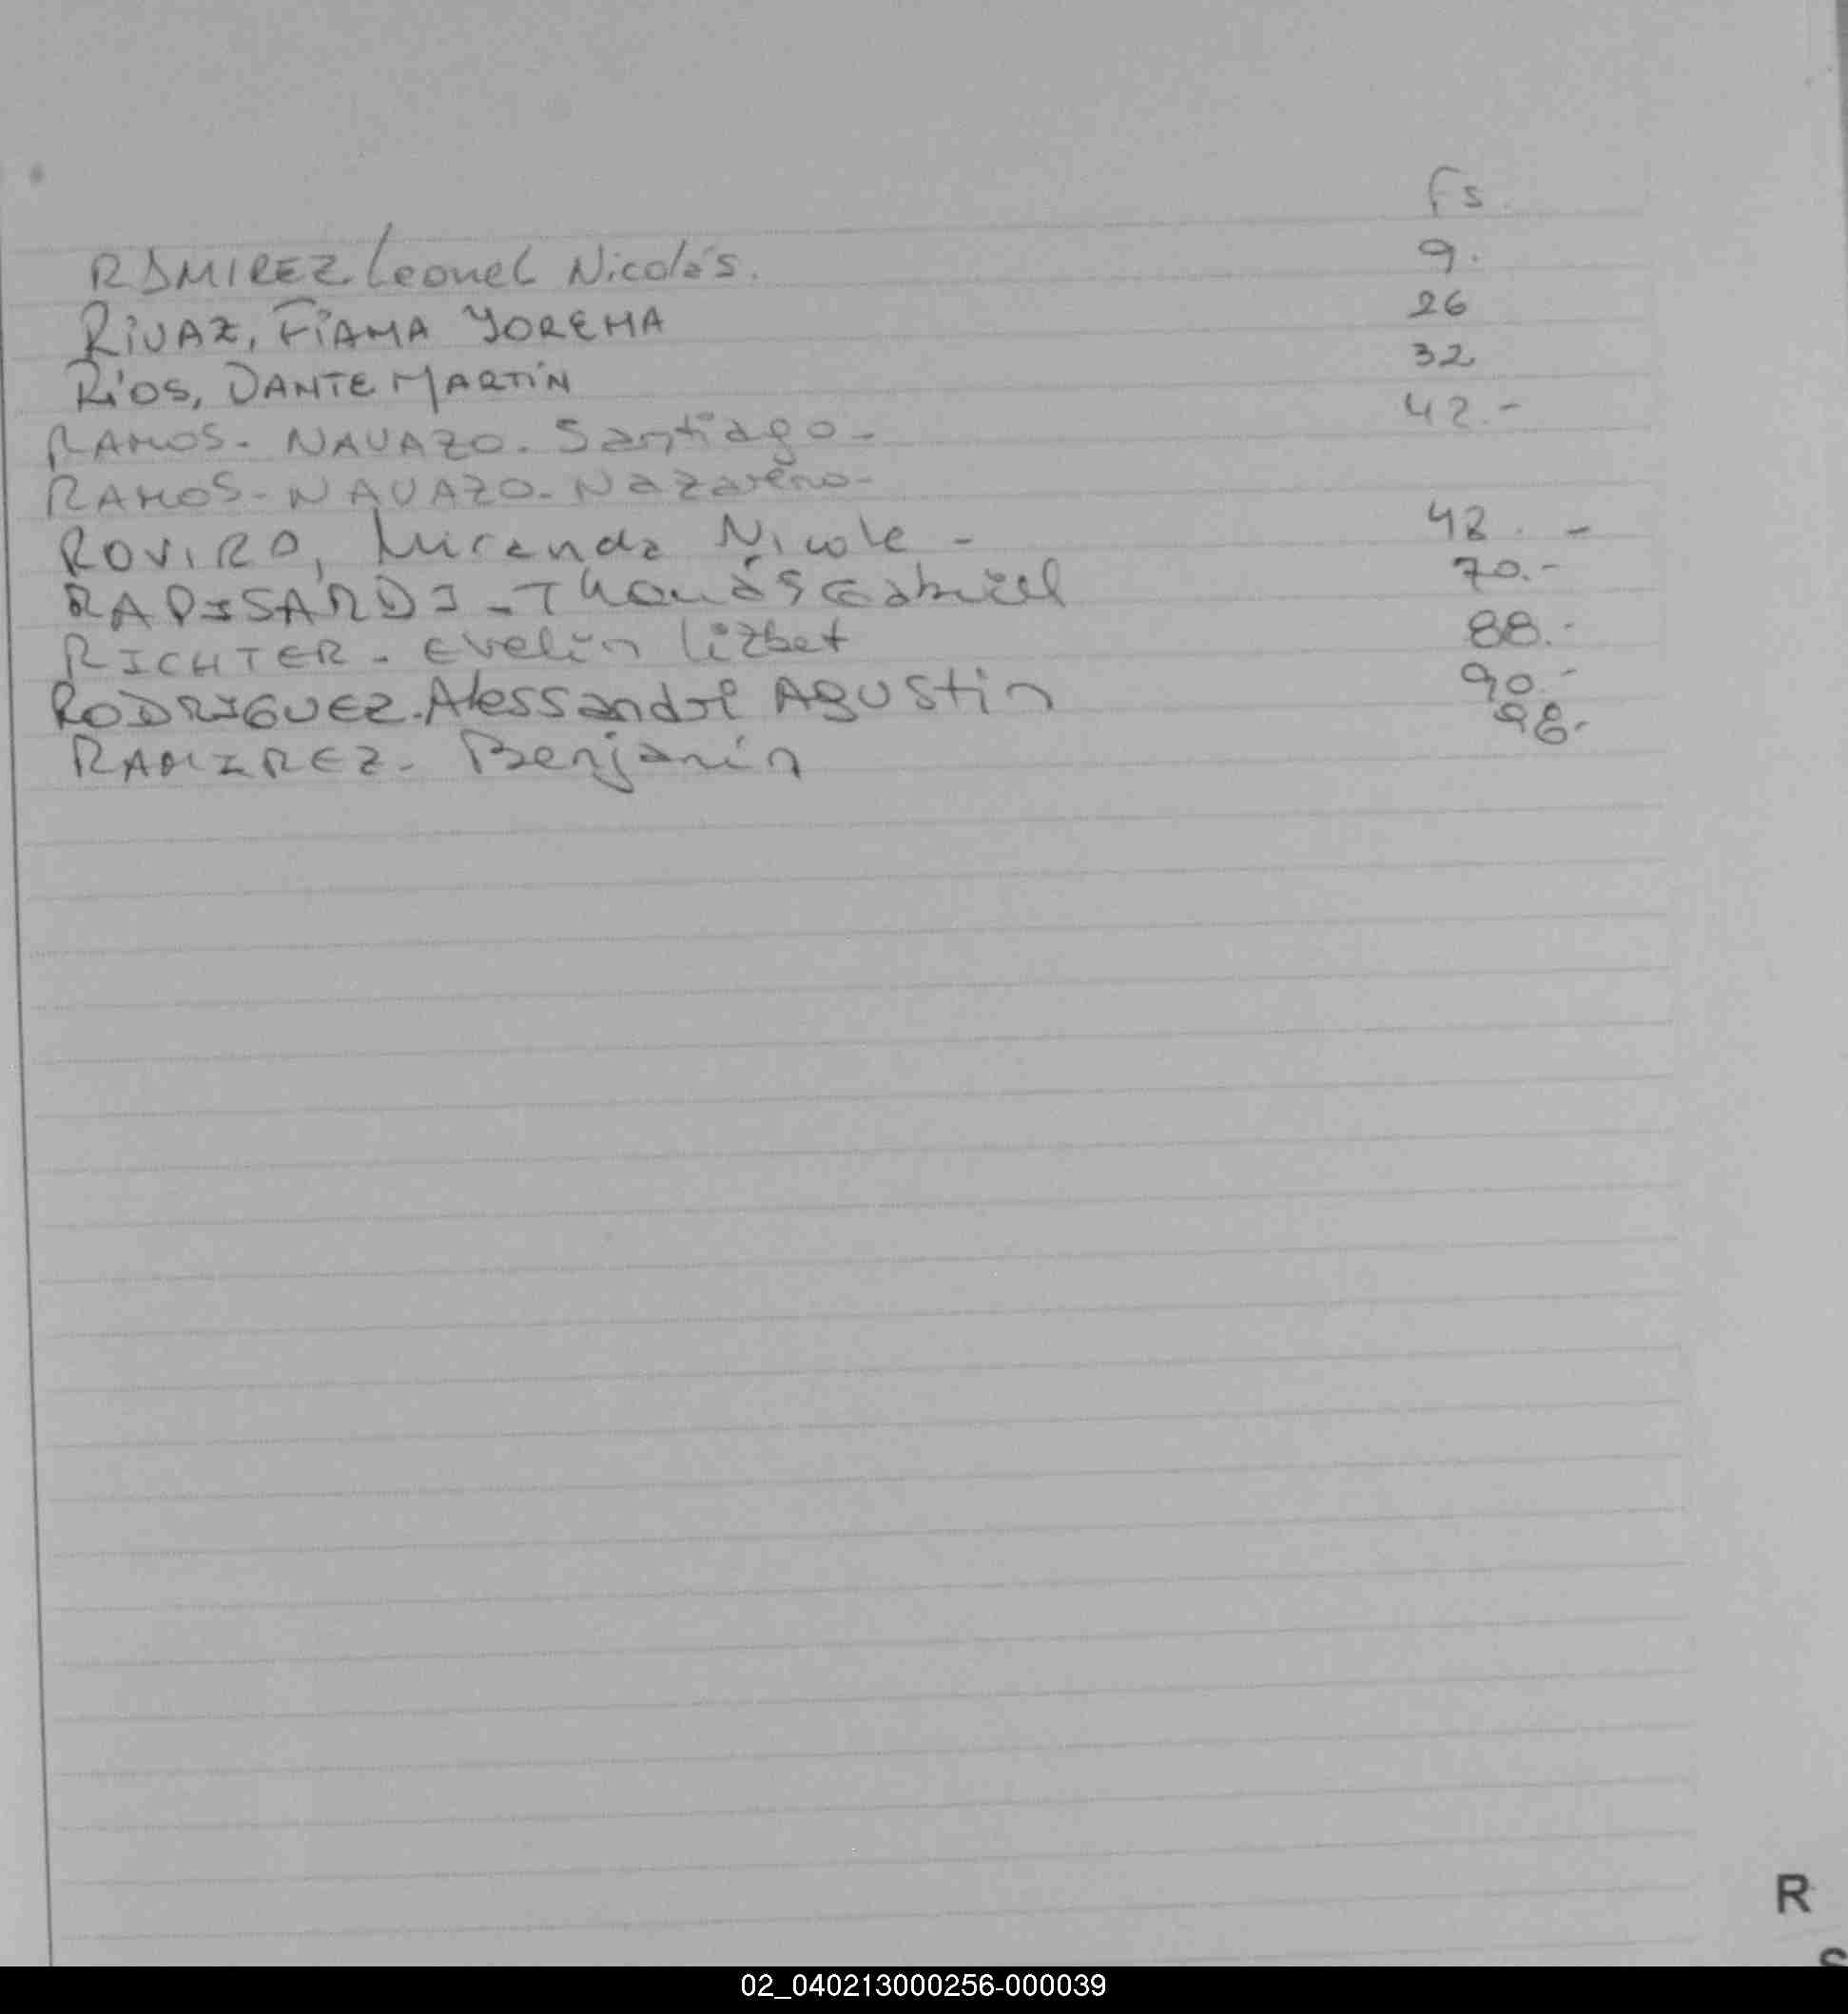 Fs.
RAMIREZ Leonel Nicolás. 9.
RIVAZ, FIAMA YOREMA 26
Ríos, DANTE MARTÍN 32
RAMOS- NAVAZO- Santiago- 42.-
RAMOS- NAVAZO- Nazareno-
ROVIRA, Miranda Nicole - 48. -
RAPISARDI - Thomás Gabriel 70.-
RICHTER - Evelin Lizbet 88.-
RODRIGUEZ-Alessandro Agustin 90.-
RAMIREZ- Benjamín 98.-
R
S
02_040213000256-000039